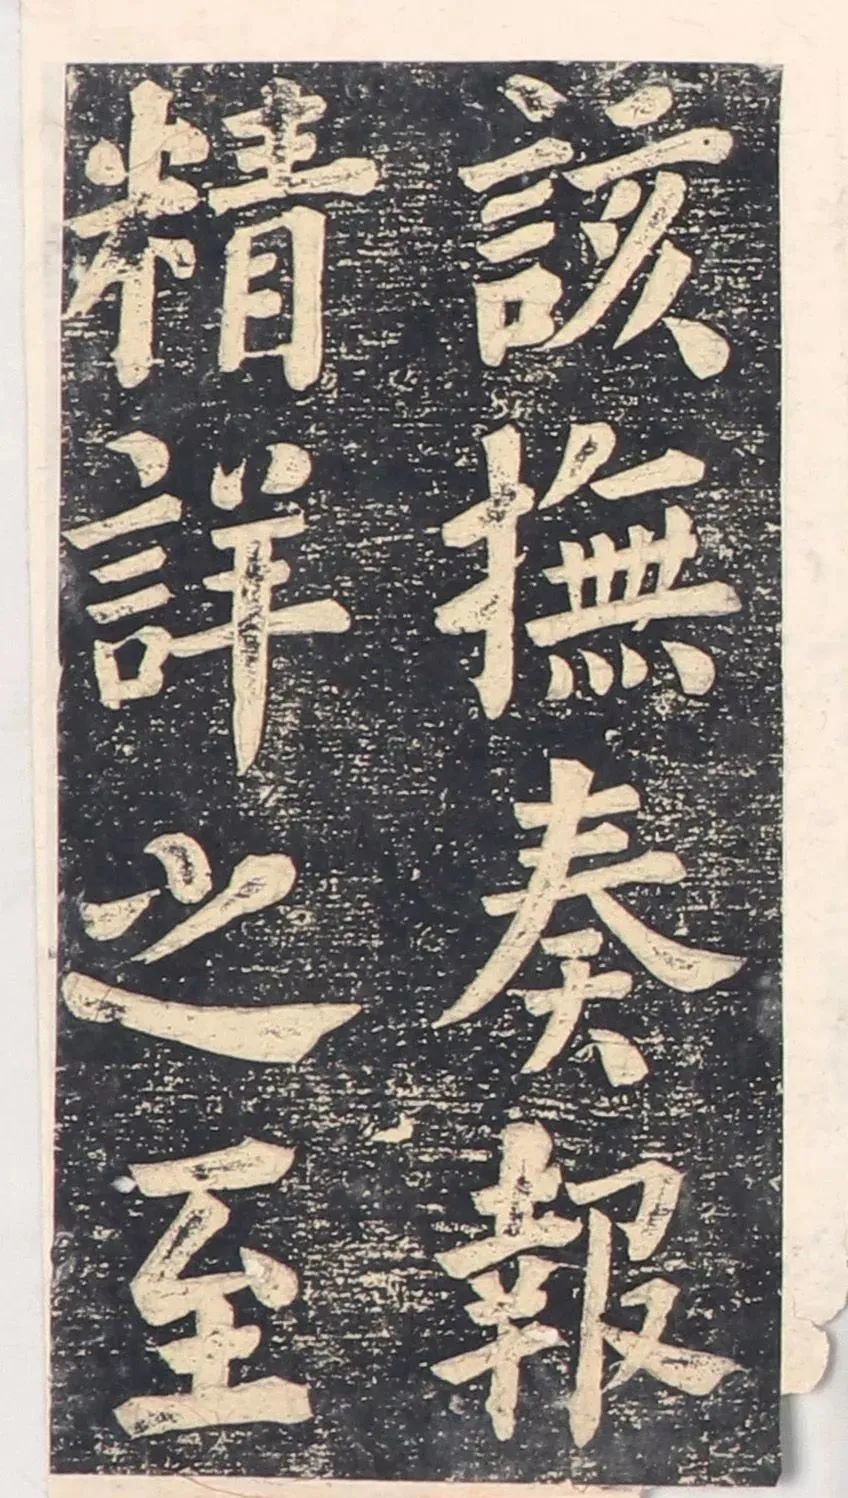 該撫奏報
精詳之至